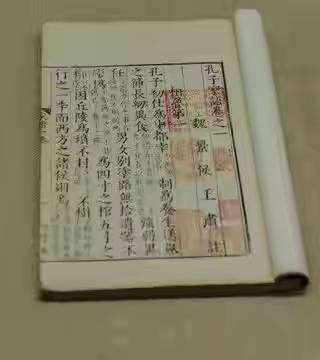 孔子家語卷之一
魏 景侯 王肅 註
相魯第一
孔子初仕為中都宰 制為養生送死
之節長幼異食 強弱異
任 男女別塗路無拾遺器不
彫偽 為四寸之棺五寸之
槨因丘陵為墳不封 不樹
行之一年而西方之諸侯則焉